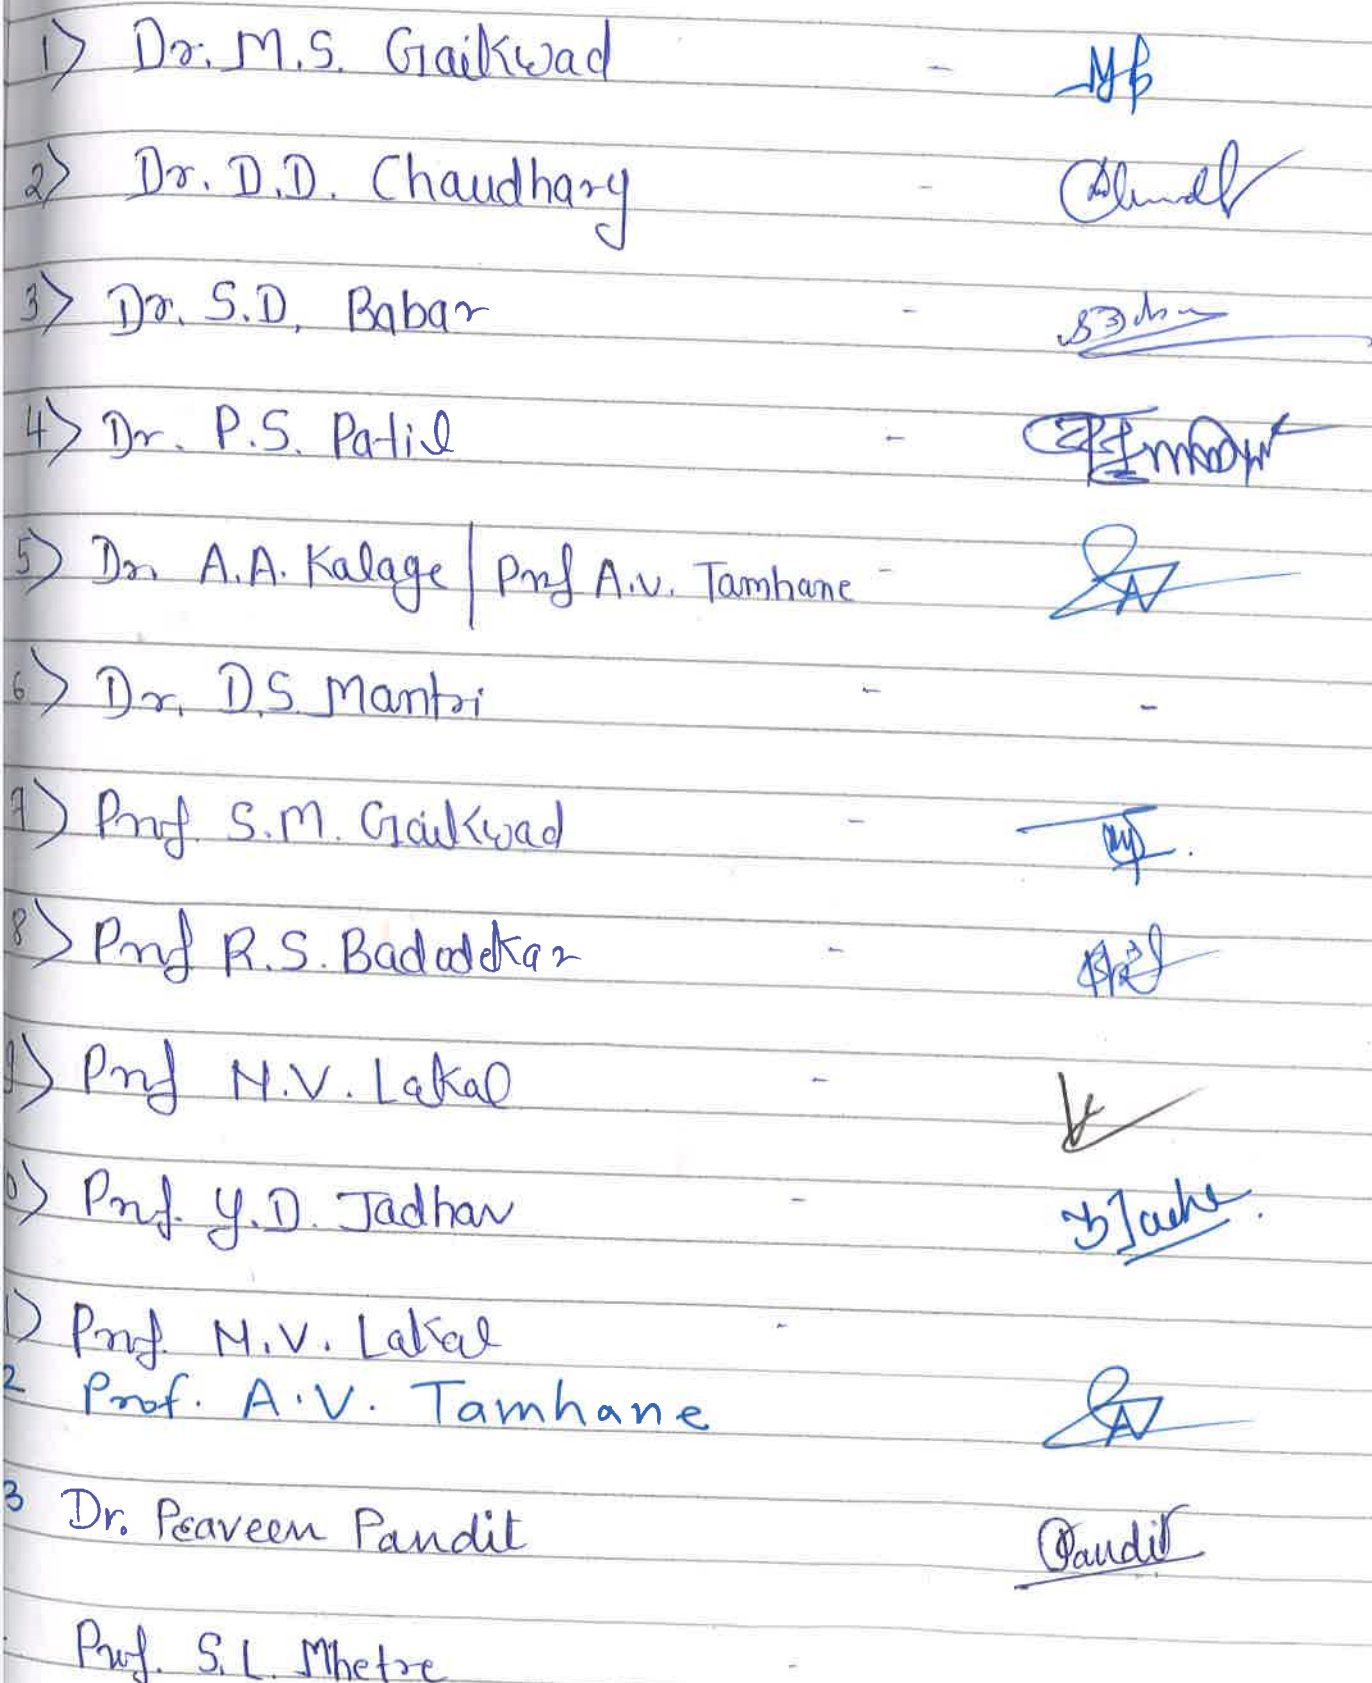 1) Dr. M.S. Gaikwad -
2) Dr. D.D. Chaudhary -
3) Dr. S.D. Babar -
4) Dr. P.S. Patil -
5) Dr. A.A. Kalage | Prof A.V. Tamhane -
6) Dr. D.S Mantri - -
7) Prof. S.M. Gaikwad -
8) Prof R.S. Badodekar -
) Prof N.V. Lakal -
0) Prof. Y.D. Jadhav -
1) Prof. N.V. Lakal -
2 Prof. A.V. Tamhane
3 Dr. Praveen Pandit Pandit
Prof. S.L. Mhetre -